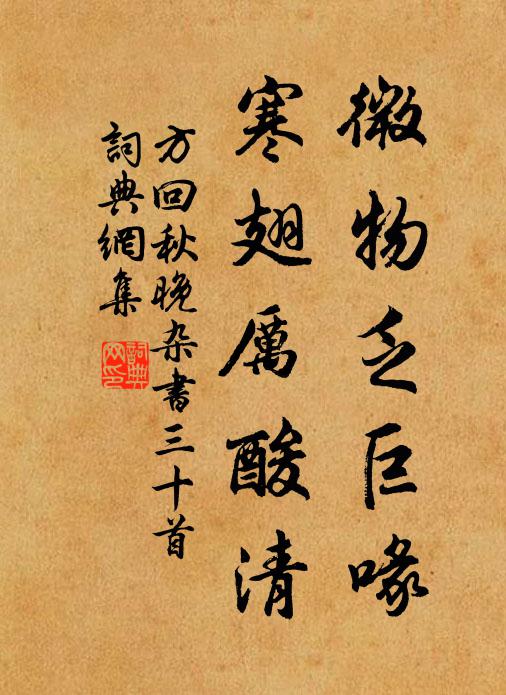 微物乏巨喙
寒翅厲酸清
方回秋晚杂書三十首
詞典網集
詞典網印